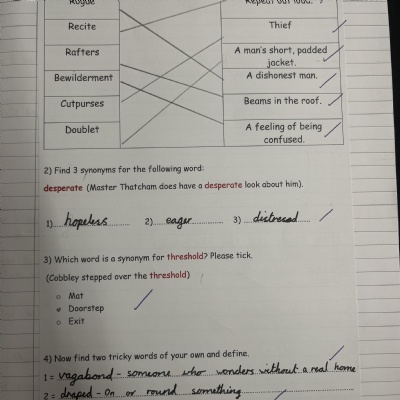 Rogue
Repeat out loud.
Recite
Thief
Rafters
A man's short, padded
jacket.
Bewilderment
A dishonest man.
Cutpurses
Beams in the roof.
Doublet
A feeling of being
confused.
2) Find 3 synonyms for the following word:
desperate (Master Thatcham does have a desperate look about him).
1) hopeless 2) eager 3) distressed
3) Which word is a synonym for threshold? Please tick.
(Cobbley stepped over the threshold)
Mat
Doorstep
Exit
4) Now find two tricky words of your own and define.
1 = vagabond - someone who wonders without a real home
2 = draped - On or round something